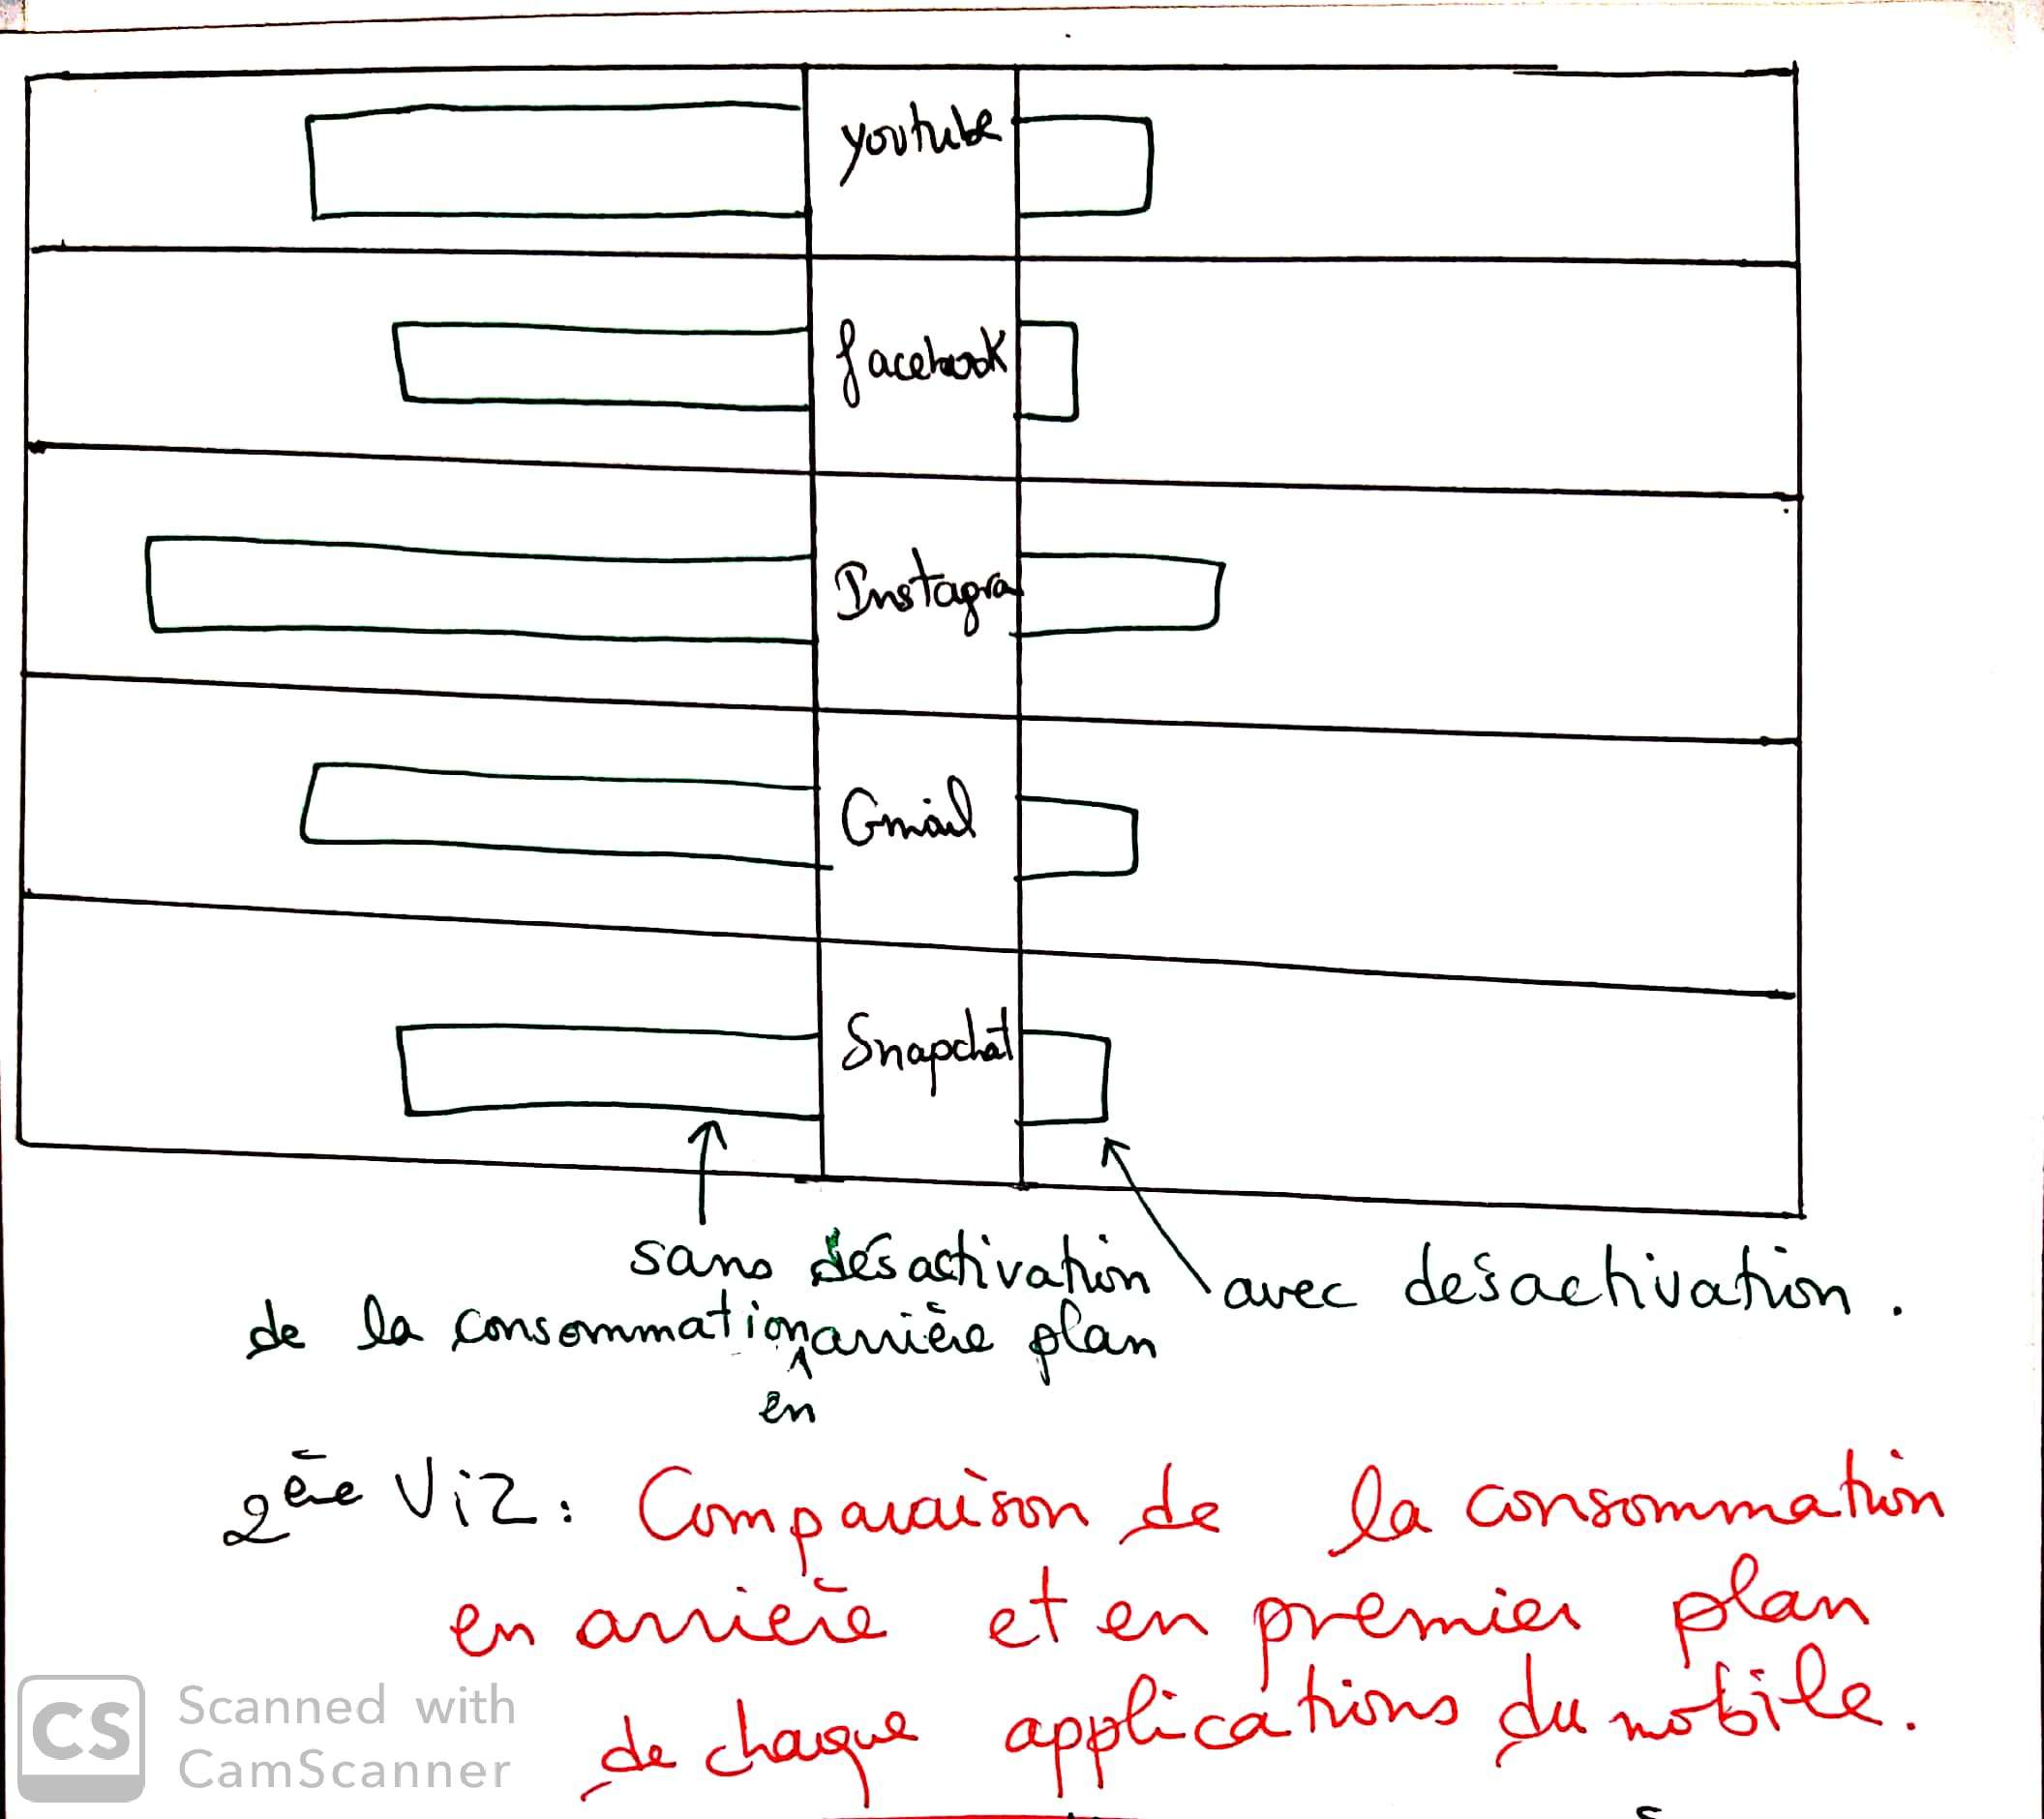 youtube
facebook
Instagra
Gmail
Snapchat
sans désactivation
avec désactivation.
de la consommation arrière plan
en
2ème Viz: Comparaison de la consommation
en arrière et en premier plan
de chaque applications du mobile.
CS Scanned with
CamScanner